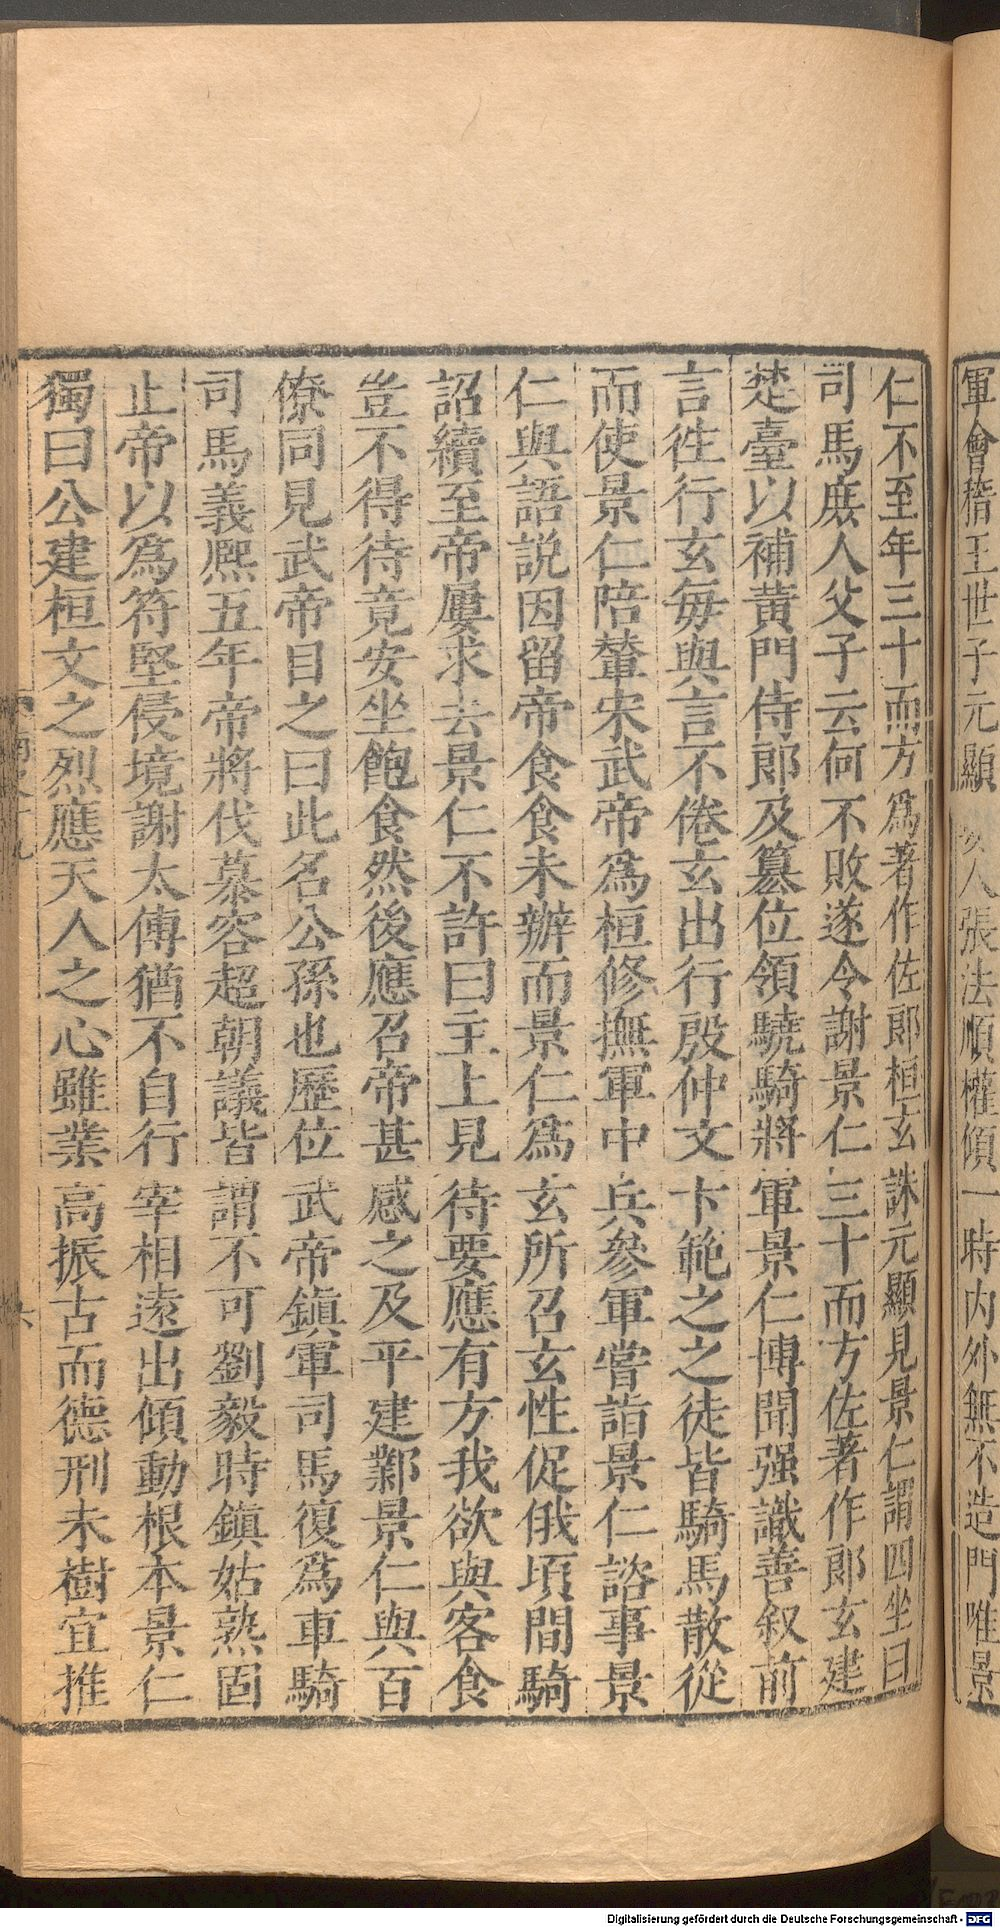 軍會稽王世子元顯嬖人張法順權傾一時内外無不造門唯景
仁不至年三十而方爲著作佐郎桓玄誅元顯見景仁謂四坐曰
司馬庶人父子云何不敗遂令謝景仁三十而方佐著作郎玄建
楚臺以補黄門侍郎及簒位領驍騎將軍景仁博聞强識善叙前
言徃行玄毎與言不倦玄出行殷仲文卞範之之徒皆騎馬散從
而使景仁陪輦宋武帝爲桓修撫軍中兵參軍嘗詣景仁諮事景
仁與語説因留帝食食未辦而景仁爲玄所召玄性促俄頃間騎
詔續至帝屢求去景仁不許曰主上見待要應有方我欲與客食
豈不得待竟安坐飽食然後應召帝甚感之及平建鄴景仁與百
僚同見武帝目之曰此名公孫也歴位武帝鎮軍司馬復爲車騎
司馬義熙五年帝將伐慕容超朝議皆謂不可劉毅時鎮姑熟固
止帝以爲符堅侵境謝太傅猶不自行宰相遠出傾動根本景仁
獨曰公建桓文之烈應天人之心雖業高振古而德刑未樹宜推
南史十九
六
Digitalisierung gefördert durch die Deutsche Forschungsgemeinschaft - DFG